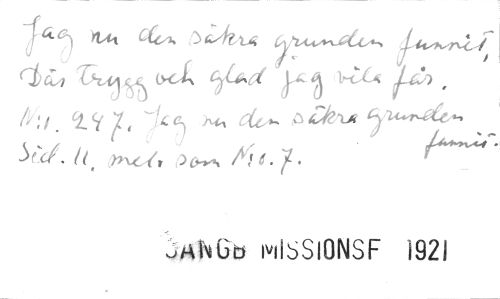 Jag nu den säkra grunden funnit,
Där trygg och glad jag vila får.
N:r. 247. Jag nu den säkra grunden
funnit.
Sid. 11. mel. som N:o. 7.
SANGB MISSIONSF 1921